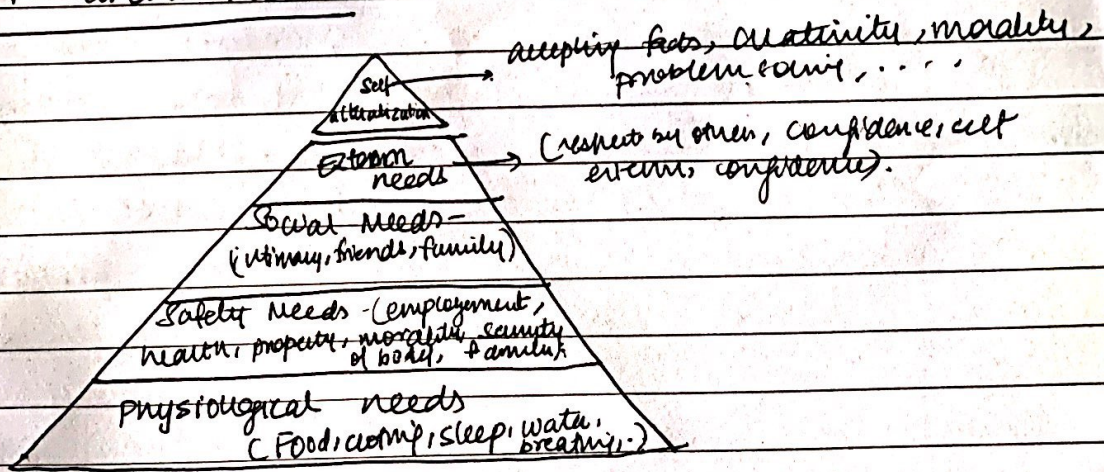 accepting facts, creativity, morality,
problem solving, . . . .
Self
(respect by others, confidence, self
esteem, confidence).
needs
Social Needs-
(intimacy, friends, family)
Safety Needs - (employement,
health, property, morality, security
of body, family).
physiological needs
(Food, clothing, sleep, water,
breathing, .)